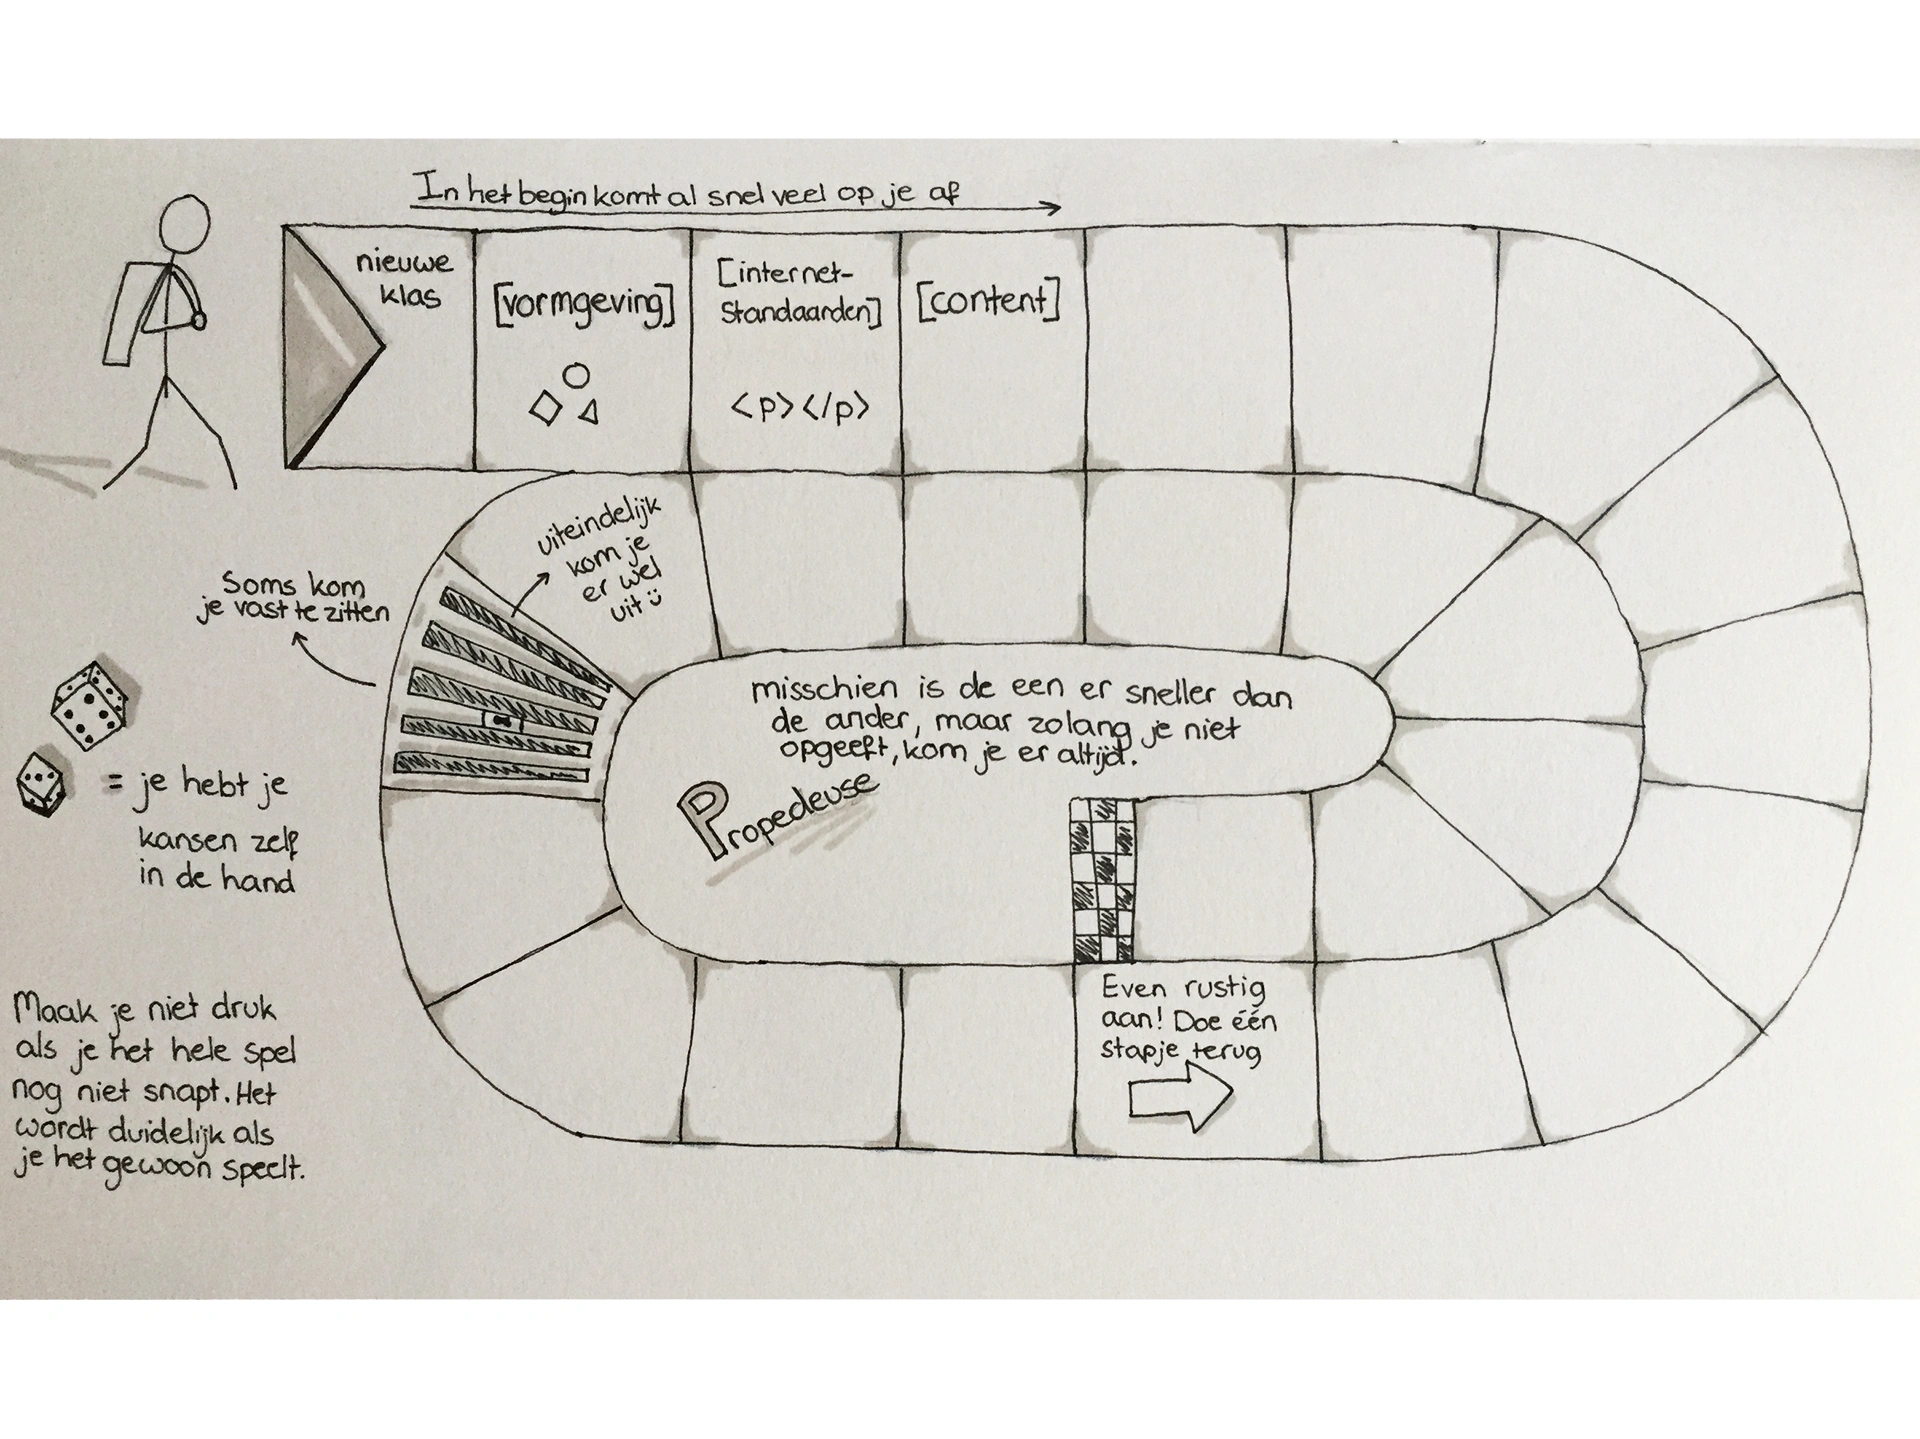 In het begin komt al snel veel op je af
nieuwe
klas
[vormgeving]
[internet-
Standaarden]
<p></p>
[content]
uiteindelijk
kom je
er wel
uit :)
Soms kom
je vast te zitten
= je hebt je
kansen zelf
in de hand
misschien is de een er sneller dan
de ander, maar zolang je niet
opgeeft, kom je er altijd.
Propedeuse
Even rustig
aan! Doe één
stapje terug
Maak je niet druk
als je het hele spel
nog niet snapt. Het
wordt duidelijk als
je het gewoon speelt.